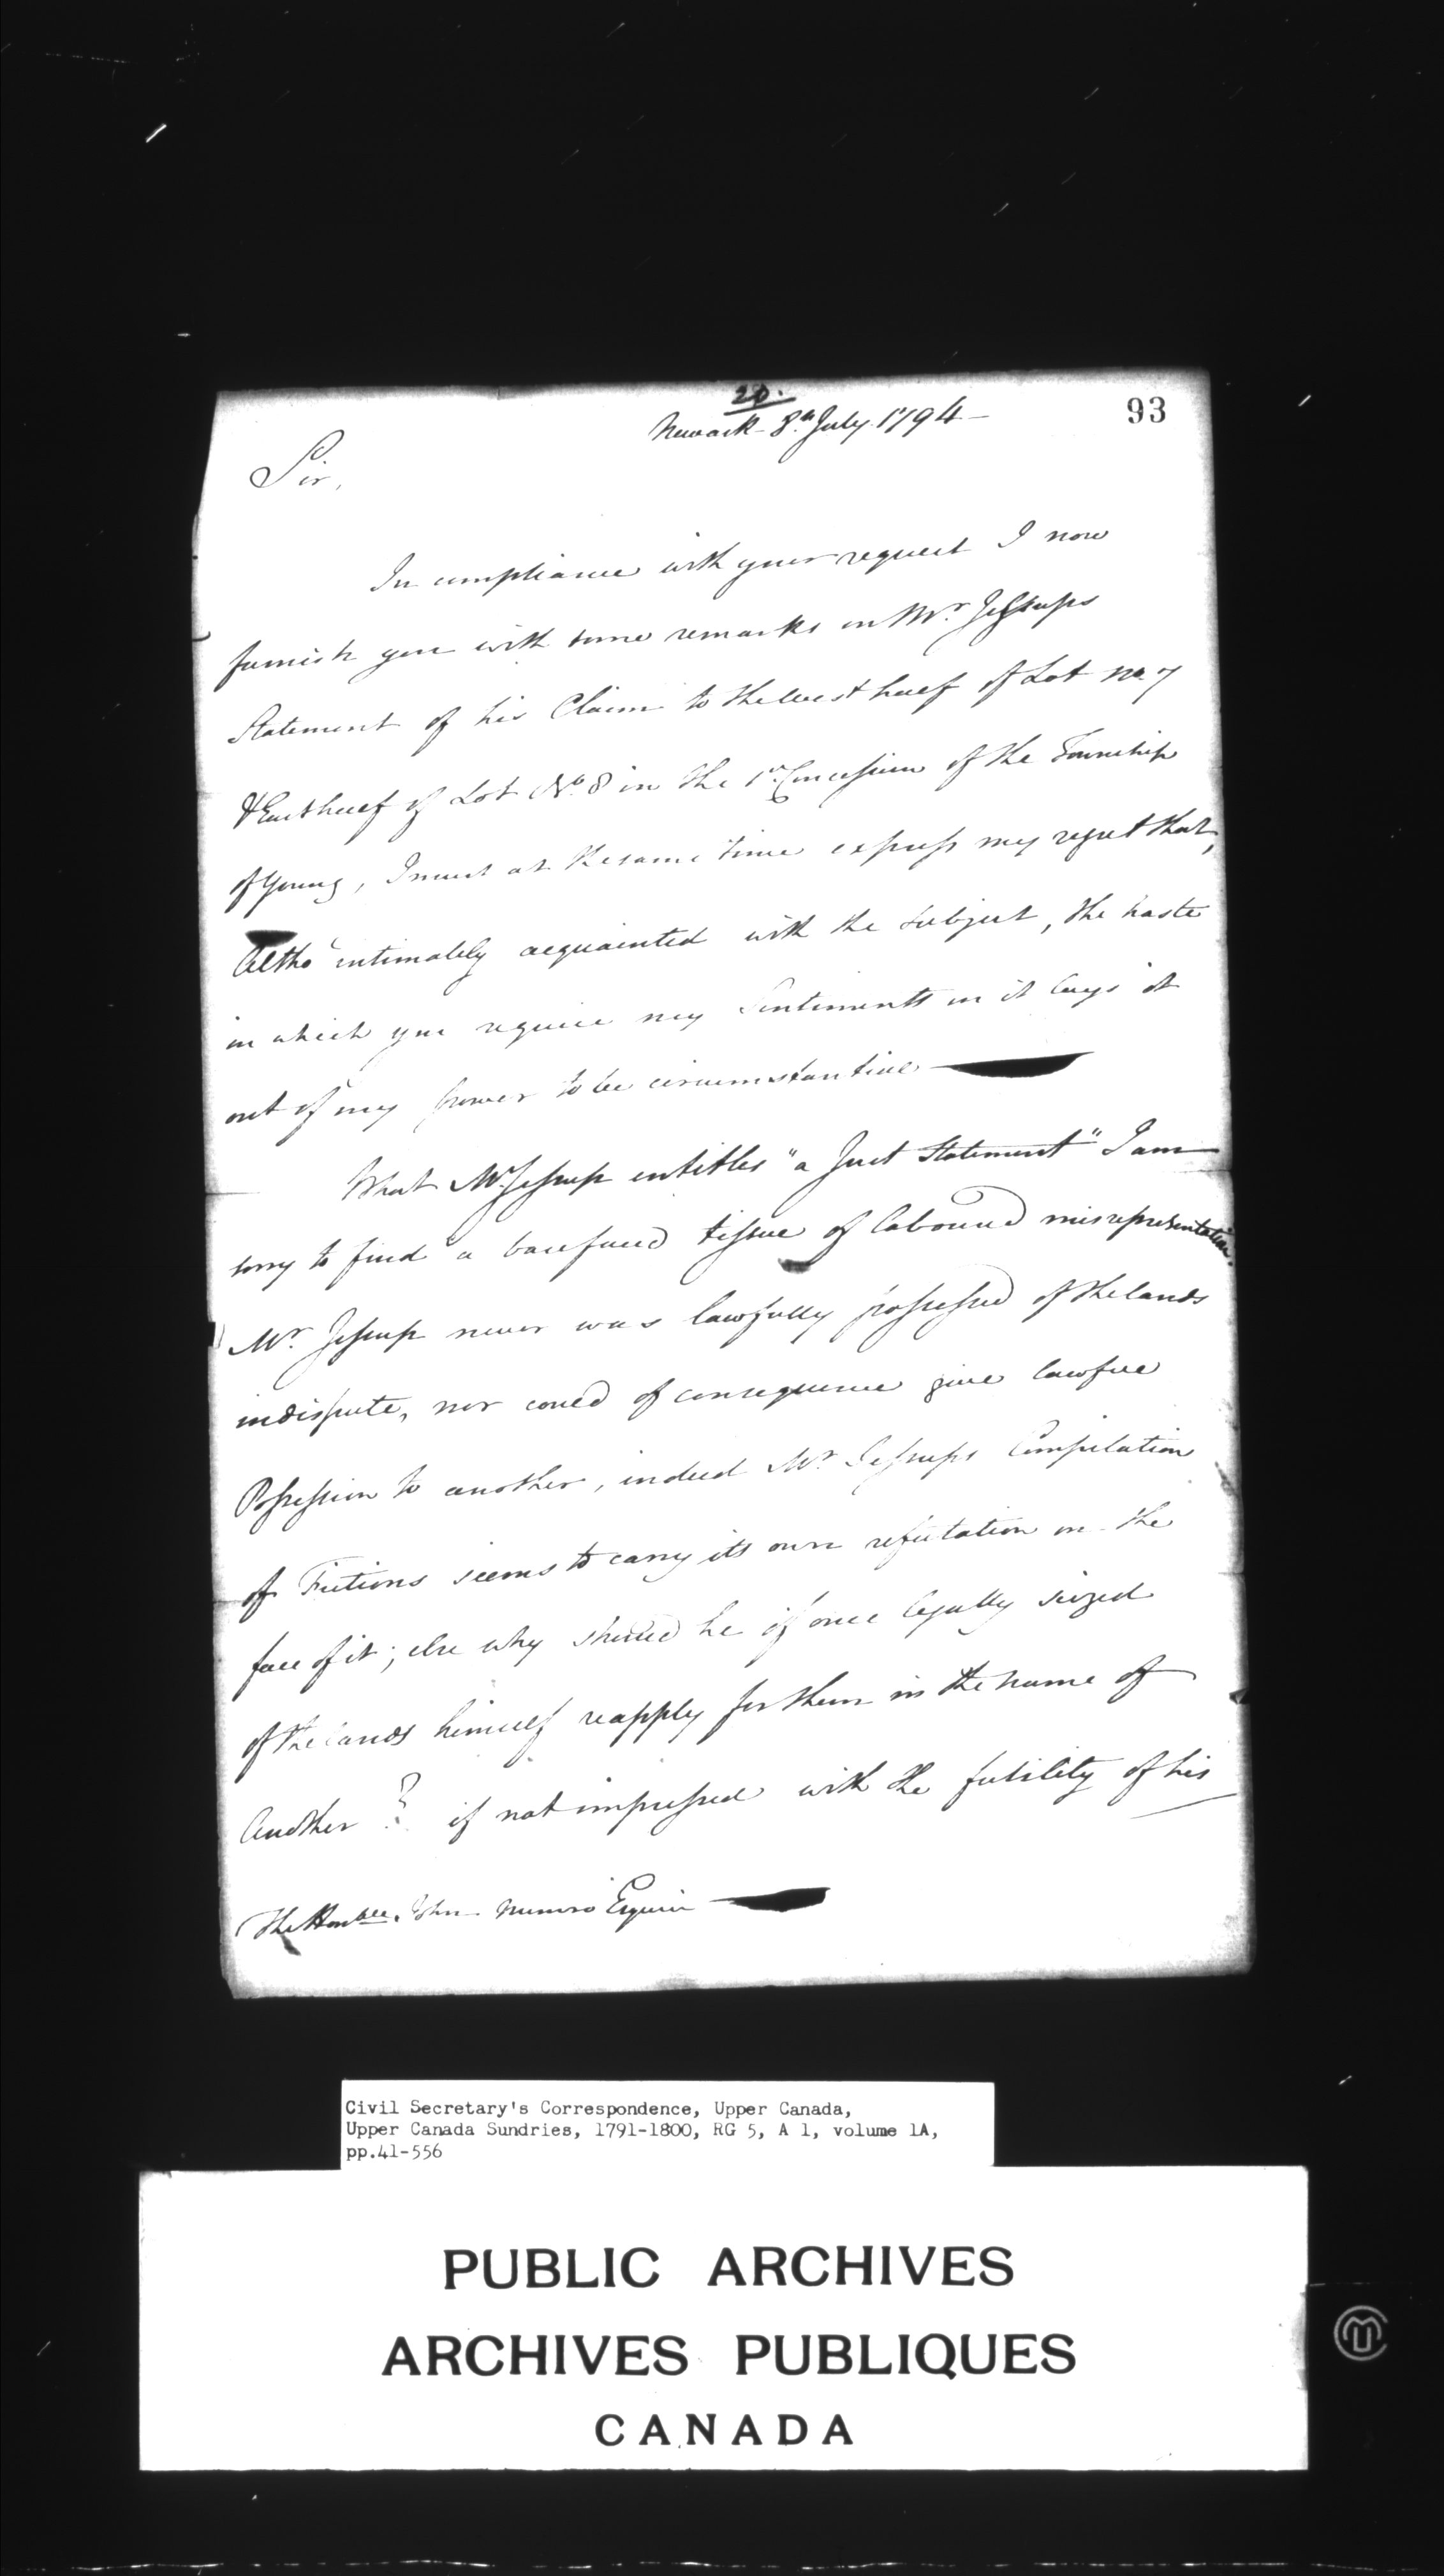 20.
93
Newark 8th July 1794
Sir,
In compliance with your request I now
furnish you with some remarks on Mr. Jessups
Statement of his Claim to the West half of Lot No 7
& East half of Lot No. 8 in the 1st Concession of the Township
of Young, I must at the same time express my regret that,
Altho' intimately acquainted with the subject, the haste
in which you require my Sentiments on it lays it
out of my power to be circumstantial
What Mr Jessup entitles "a Just Statement" I am
sorry to find a barefaced tissue of laboured misrepresentation.
Mr. Jessup never was lawfully possessed of the lands
in dispute, nor could of consequence give lawful
Possession to another, indeed Mr. Jessups Compilation
of Fictions seems to carry its own refutation on the
face of it; else why should he if once legally seized
of the lands himself reapply for them in the name of
Another? if not impressed with the futility of his
The Honble. John Munro Esquire
Civil Secretary's Correspondence, Upper Canada,
Upper Canada Sundries, 1791-1800, RG 5, A 1, volume 1A,
pp.41-556
PUBLIC ARCHIVES
ARCHIVES PUBLIQUES
CANADA